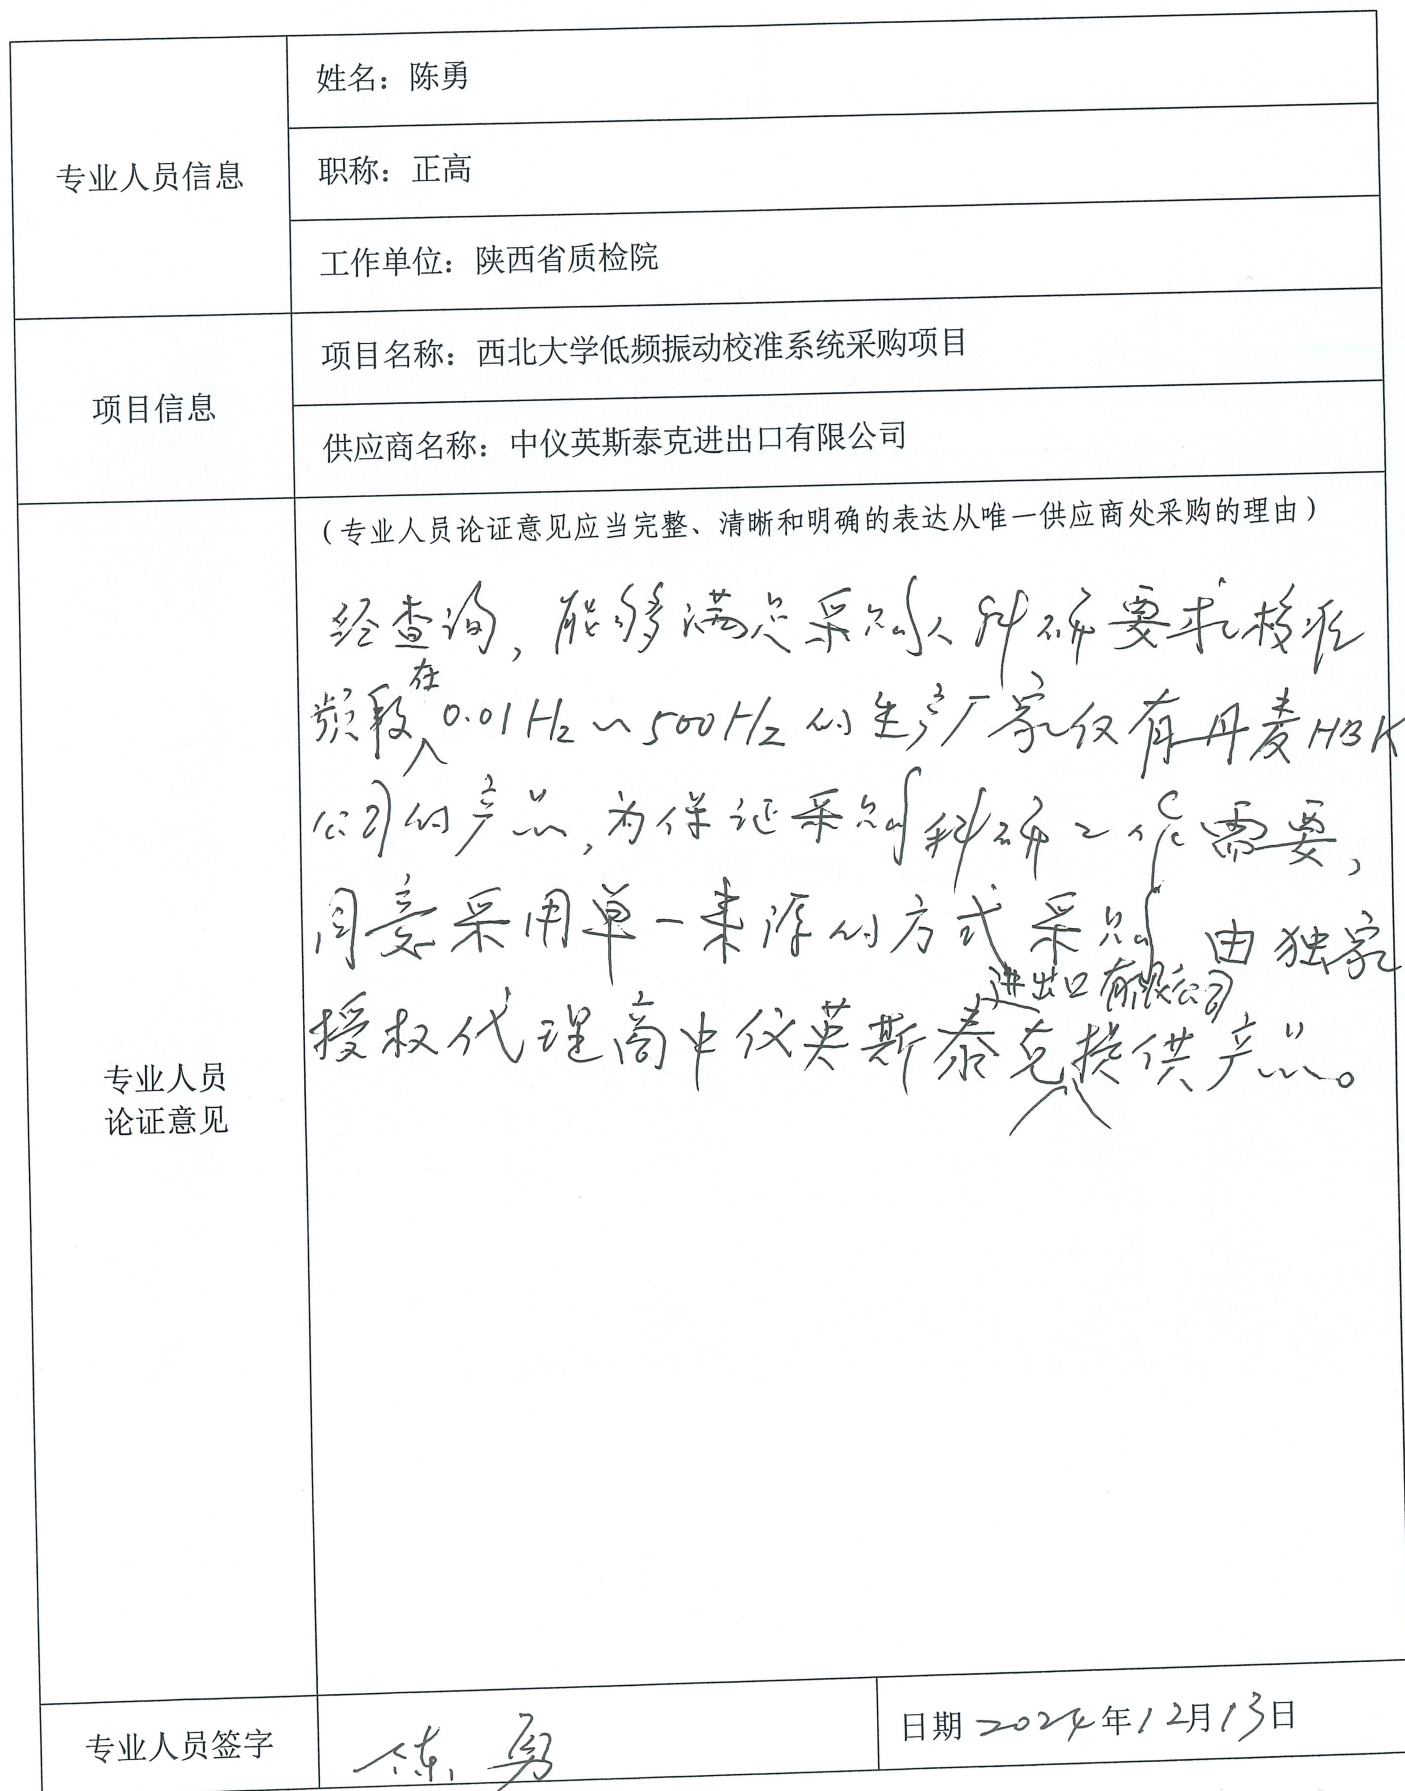 专业人员信息
姓名：陈勇
职称：正高
工作单位：陕西省质检院
项目信息
项目名称：西北大学低频振动校准系统采购项目
供应商名称：中仪英斯泰克进出口有限公司
专业人员
论证意见
（专业人员论证意见应当完整、清晰和明确的表达从唯一供应商处采购的理由）
经查询，能够满足采购人科研要求校准
频段在0.01Hz～500Hz的生产厂家仅有丹麦HBK
公司的产品，为保证采购科研工作需要，
同意采用单一来源的方式采购 由独家
授权代理商中仪英斯泰克进出口有限公司提供产品。
专业人员签字
陈勇
日期 2024年12月13日